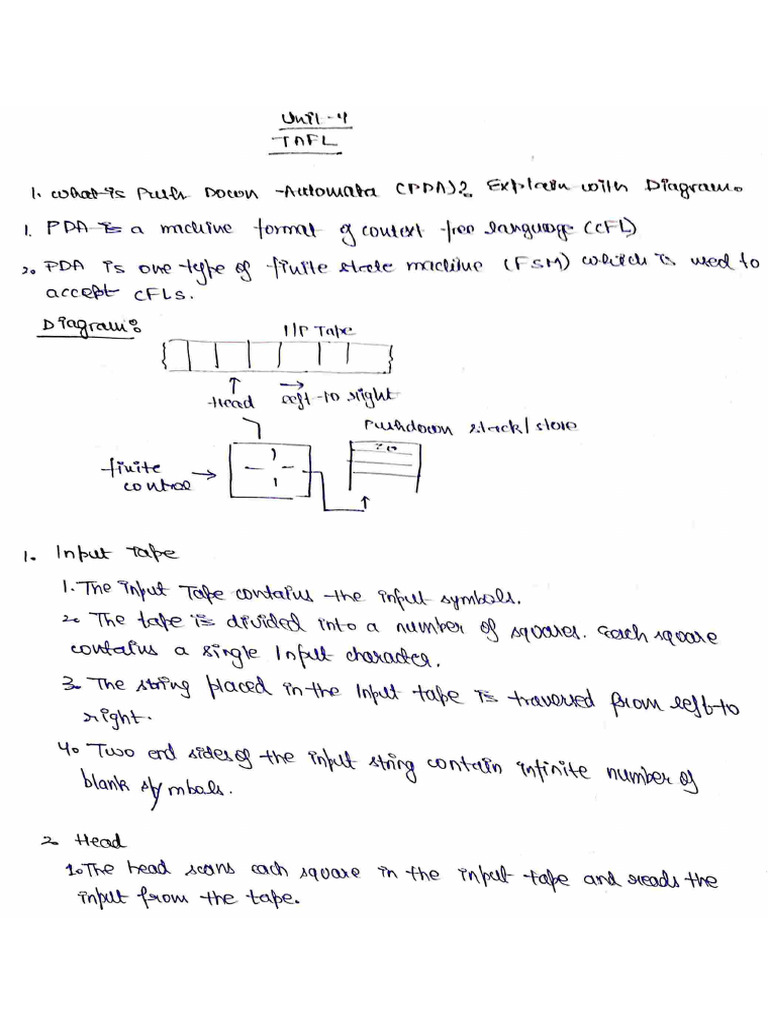 Unit-4
TAFL
1. What is Push Down -Automata (PDA)? Explain with Diagram.
1. PDA is a machine format of context free language (CFL)
2. PDA is one type of finite state machine (FSM) which is used to
accept CFLs.
Diagram:
I/P Tape
Head left-to right
Pushdown stack/store
finite
control
Z0
1. Input Tape
1. The input Tape contains the input symbols.
2. The tape is divided into a number of squares. Each square
contains a single Input character.
3. The string placed in the Input tape is traversed from left to
right.
4. Two end sides of the input string contain infinite number of
blank symbols.
2. Head
1. The head scans each square in the input tape and reads the
input from the tape.